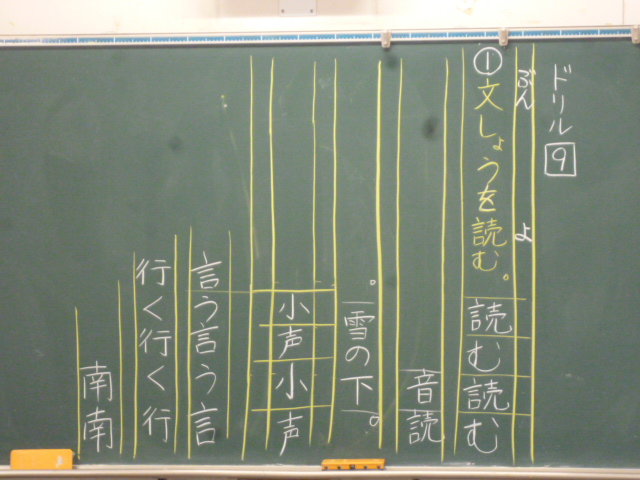 ドリル 9
ぶん よ
①文しょうを読む。読む読む
音読
。雪の下。
小声小声
言う言う言
行く行く行
南南